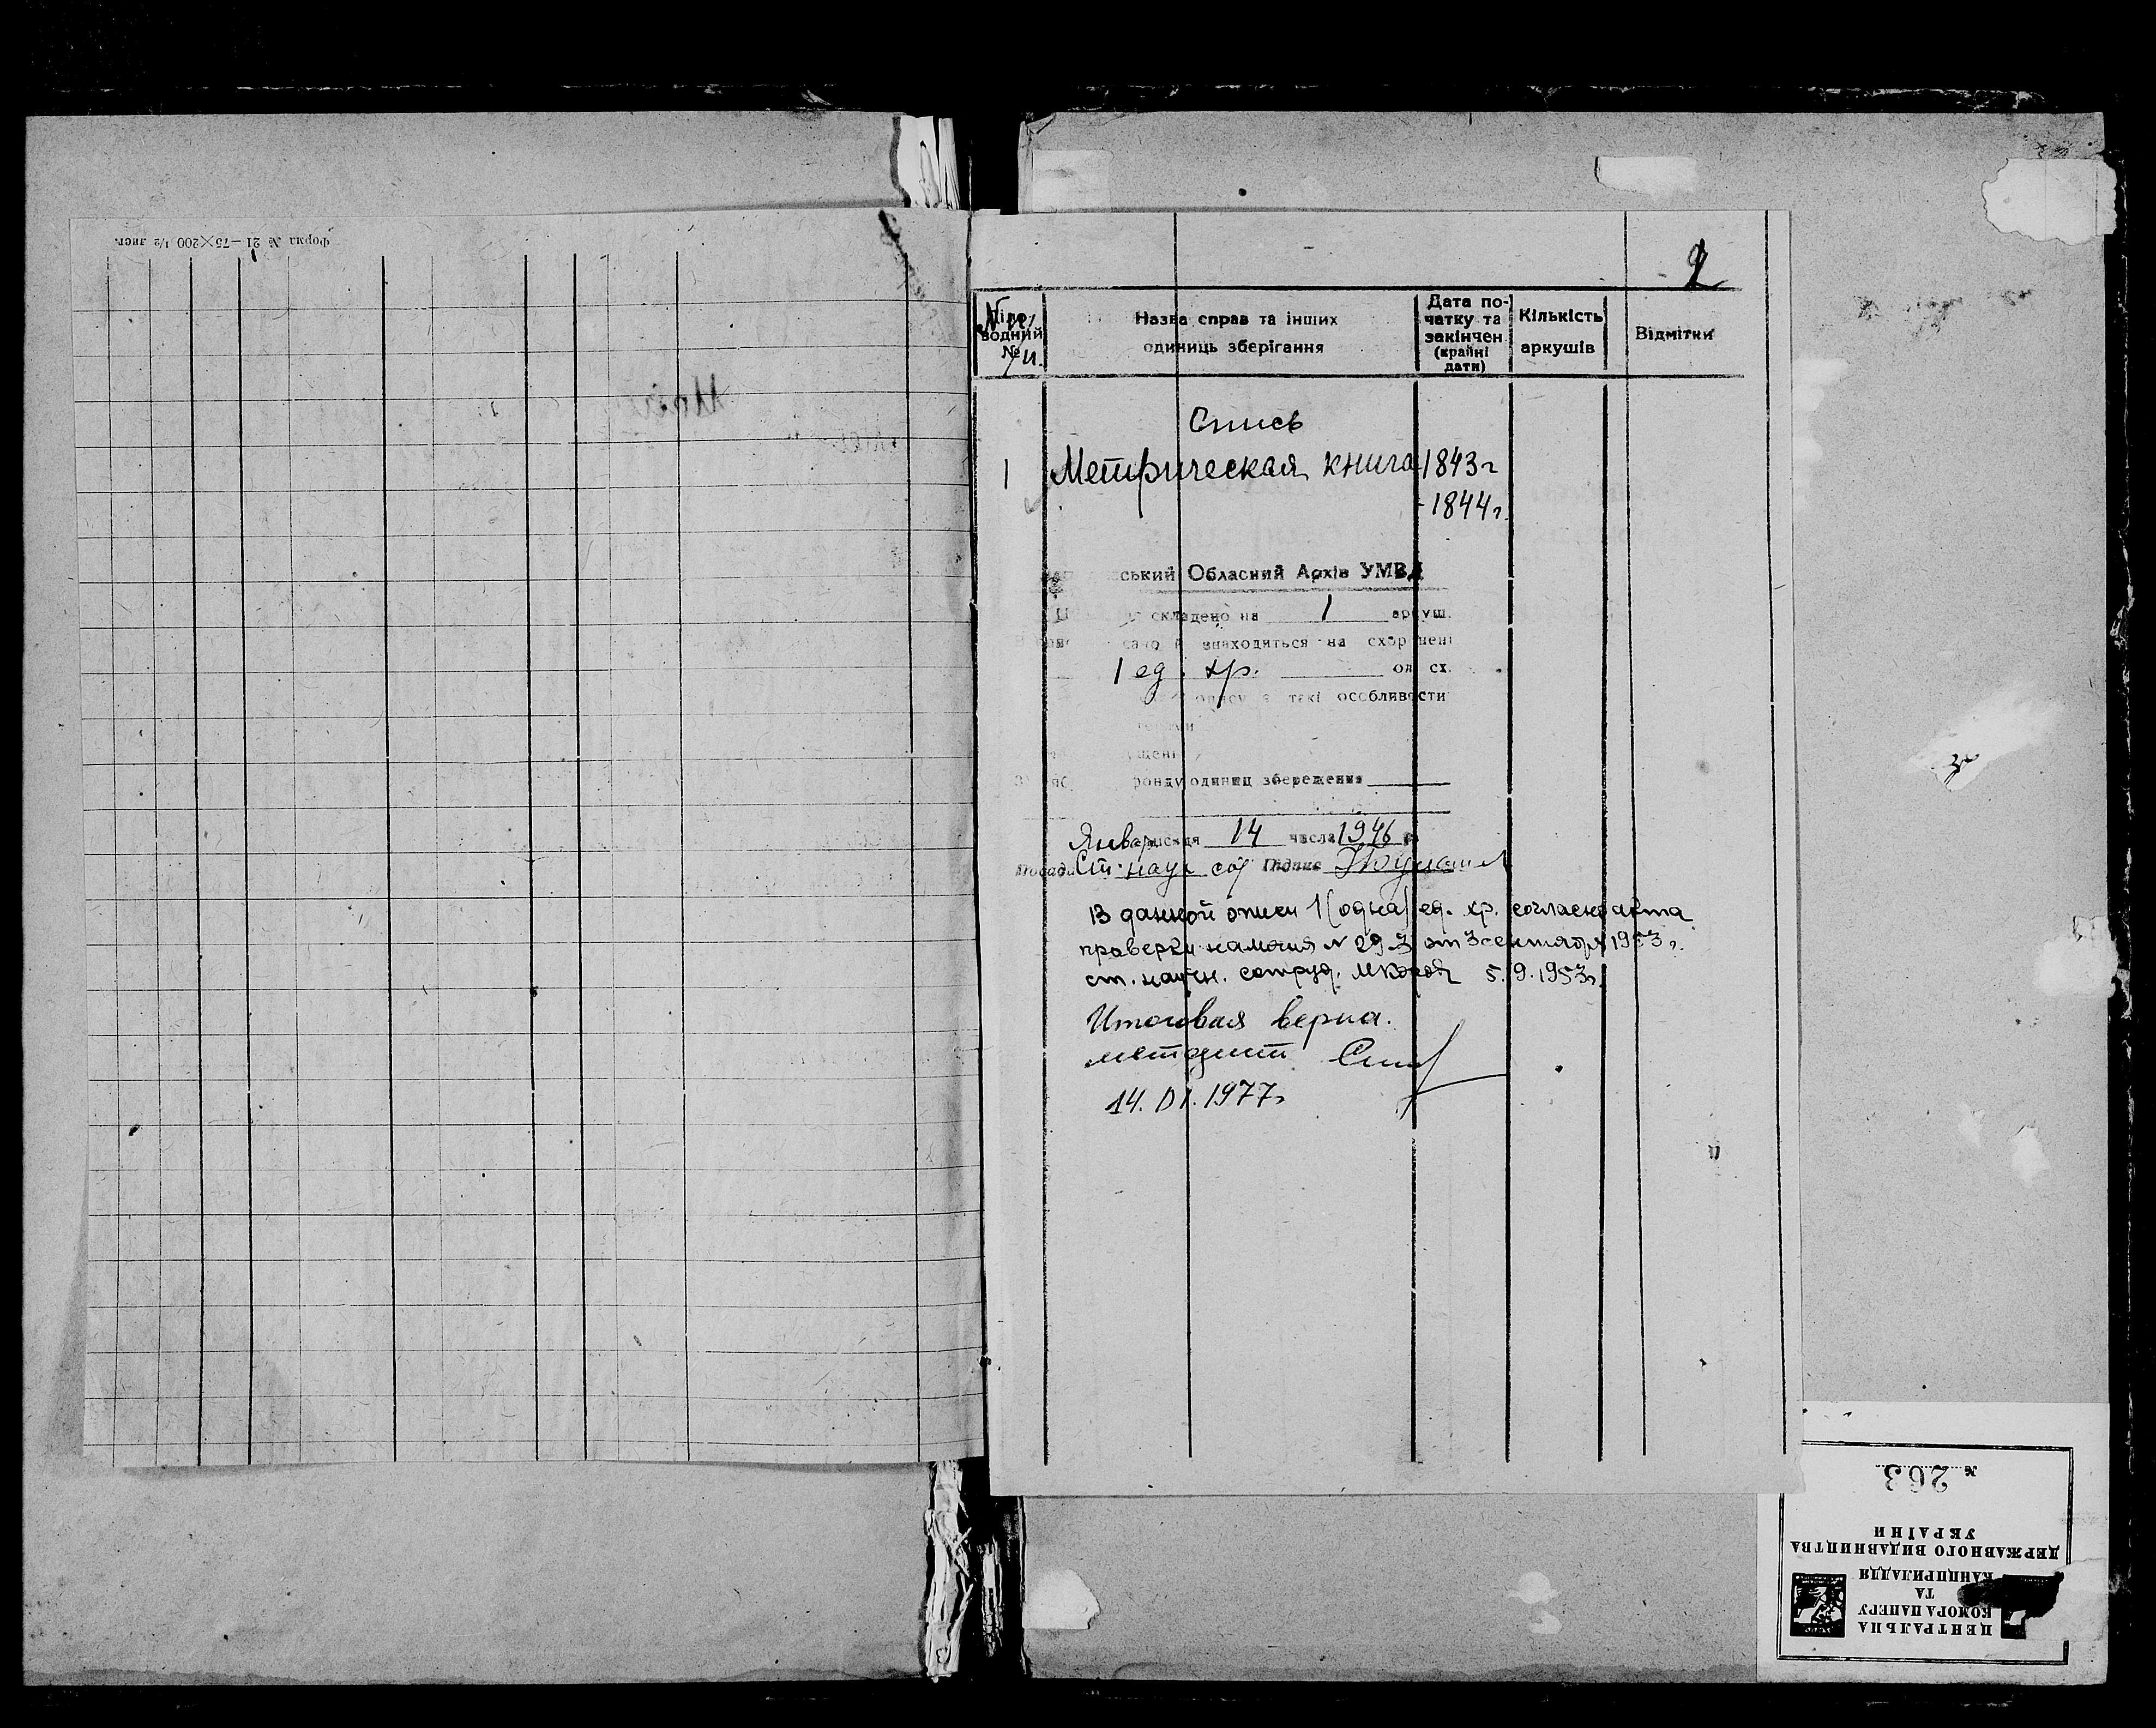 Форма № 21—75×200 1/2 лист.
2
Діло-
водний
№
Назва справ та інших
одиниць зберігання
Дата по-
чатку та
закінчен
(крайні
дати)
Кількість
аркушів
Відмітки
Опись
1 Метрическая книга 1843 г
-1844 г.
ський Обласний Архів УМВД
складено на 1 аркуш.
знаходиться на
1 ед. хр. од. сх.
опису є такі особливости
фонду одиниц збереження
Января місяця 14 числа 1946 р.
Посада Ст. науч. сот Підпис
В данной описи 1 (одна) ед. хр. согласно акта
проверки наличия N 293 от 3 сентября 1953 г.
ст. научн. сотруд. 5.9.1953 г.
Итоговая верна.
методист
14.01.1977 г
№ 263
ЦЕНТРАЛЬНА
КОМОРА ПАПЕРУ
ТА
КАНЦПРИЛАДДЯ
ДЕРЖАВНОГО ВИДАВНИЦТВА
УКРАЇНИ